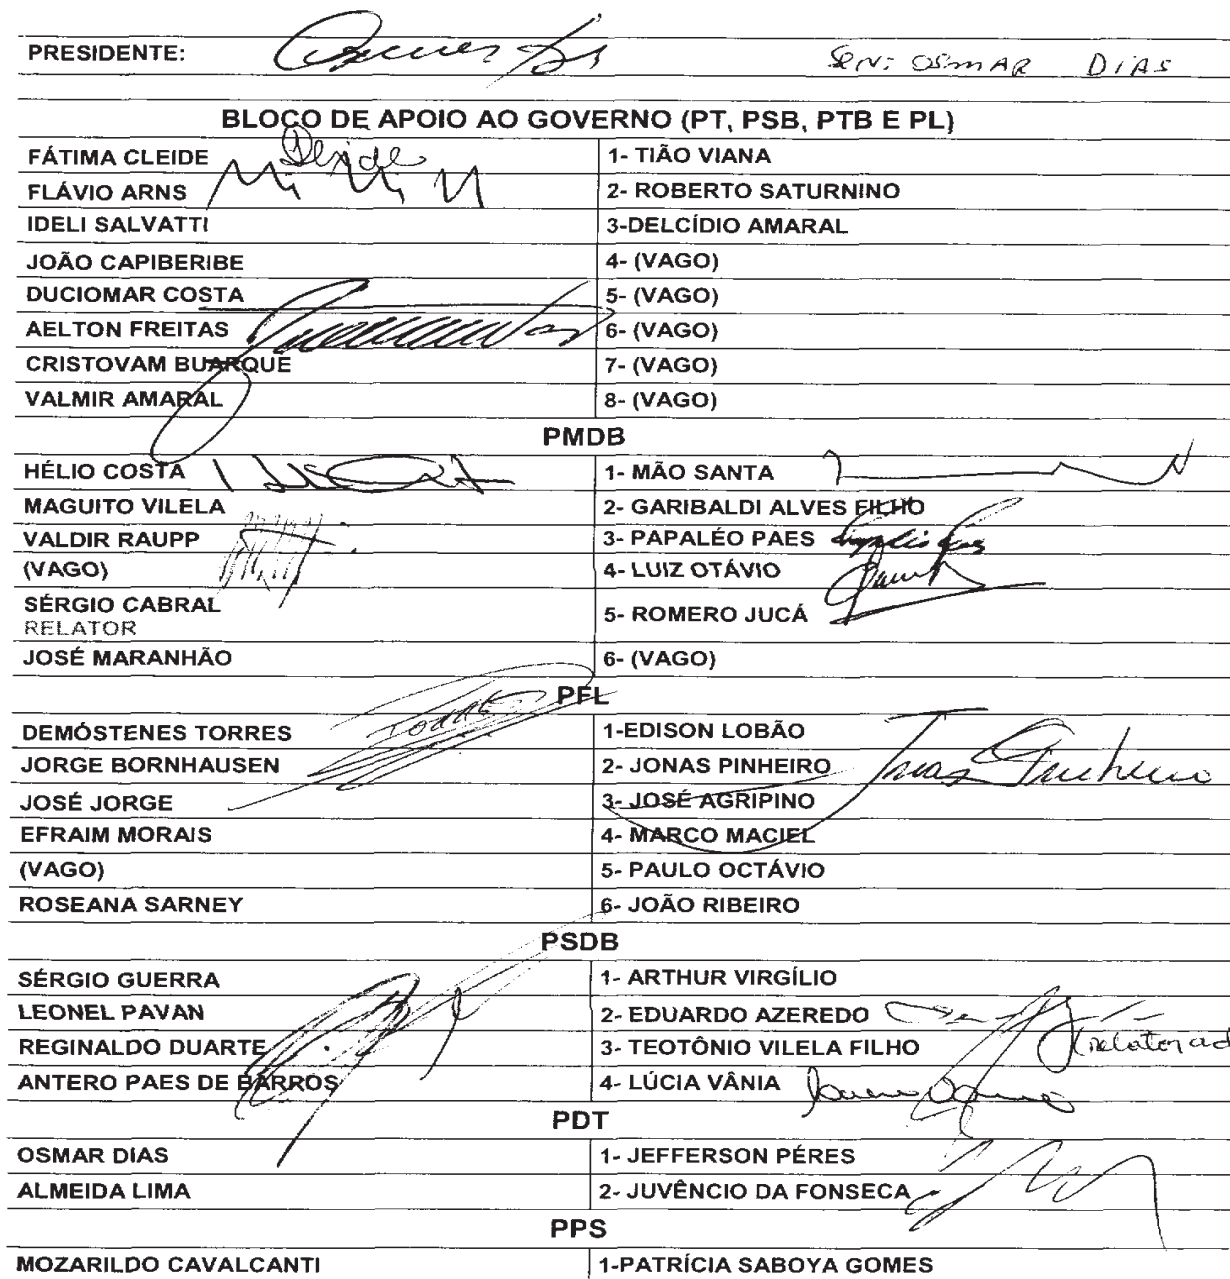 PRESIDENTE: SEN: OSMAR DIAS
BLOCO DE APOIO AO GOVERNO (PT, PSB, PTB E PL)
FÁTIMA CLEIDE 1- TIÃO VIANA
FLÁVIO ARNS 2- ROBERTO SATURNINO
IDELI SALVATTI 3-DELCÍDIO AMARAL
JOÃO CAPIBERIBE 4- (VAGO)
DUCIOMAR COSTA 5- (VAGO)
AELTON FREITAS 6- (VAGO)
CRISTOVAM BUARQUE 7- (VAGO)
VALMIR AMARAL 8- (VAGO)
PMDB
HÉLIO COSTA 1- MÃO SANTA
MAGUITO VILELA 2- GARIBALDI ALVES FILHO
VALDIR RAUPP 3- PAPALÉO PAES
(VAGO) 4- LUIZ OTÁVIO
SÉRGIO CABRAL 5- ROMERO JUCÁ
RELATOR
JOSÉ MARANHÃO 6- (VAGO)
PFL
DEMÓSTENES TORRES 1-EDISON LOBÃO
JORGE BORNHAUSEN 2- JONAS PINHEIRO Jonas Pinheiro
JOSÉ JORGE 3- JOSÉ AGRIPINO
EFRAIM MORAIS 4- MARCO MACIEL
(VAGO) 5- PAULO OCTÁVIO
ROSEANA SARNEY 6- JOÃO RIBEIRO
PSDB
SÉRGIO GUERRA 1- ARTHUR VIRGÍLIO
LEONEL PAVAN 2- EDUARDO AZEREDO
REGINALDO DUARTE 3- TEOTÔNIO VILELA FILHO (relator ad
ANTERO PAES DE BARROS 4- LÚCIA VÂNIA
PDT
OSMAR DIAS 1- JEFFERSON PÉRES
ALMEIDA LIMA 2- JUVÊNCIO DA FONSECA
PPS
MOZARILDO CAVALCANTI 1-PATRÍCIA SABOYA GOMES